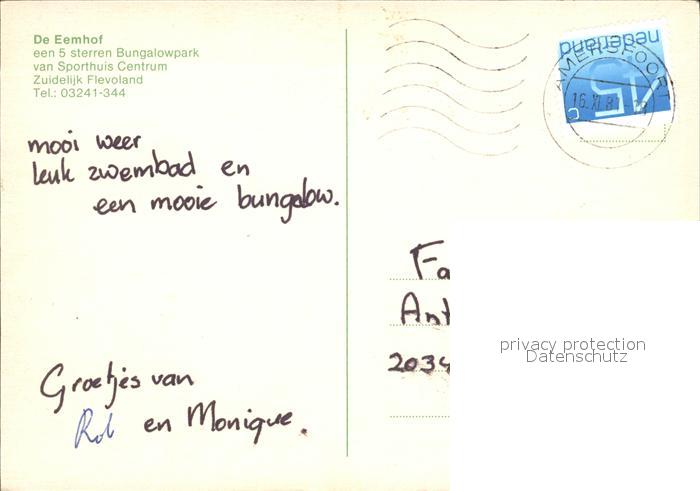 De Eemhof
een 5 sterren Bungalowpark
van Sporthuis Centrum
Zuidelijk Flevoland
Tel.: 03241-344
mooi weer
leuk zwembad en
een mooie bungalow.
Groetjes van
Rob en Monique.
nederland
45
c
AMERSFOORT
16.XI.8
Fa
Ant
2034
privacy protection
Datenschutz